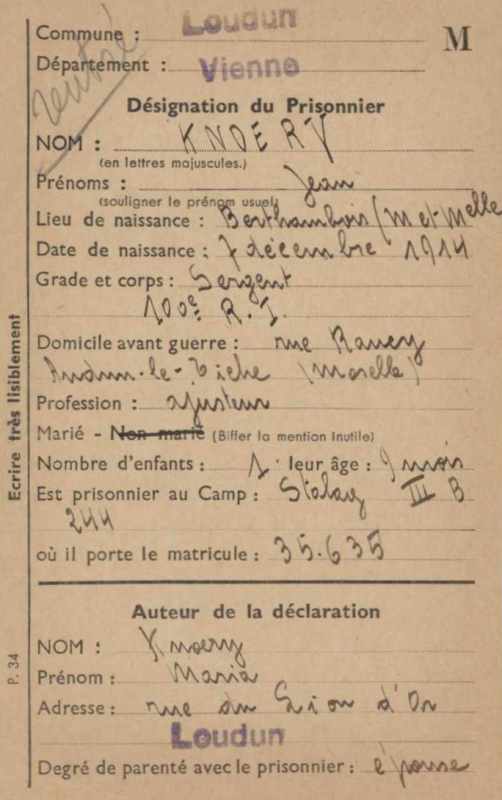 Commune : Loudun
M
rentré
Département : Vienne
Désignation du Prisonnier
NOM : KNOERY
(en lettres majuscules.)
Prénoms : Jean
(souligner le prénom usuel)
Lieu de naissance : (Met-Melle
Date de naissance : 7 décembre 1914
Grade et corps : Sergent
100e R.I.
Domicile avant guerre : rue Rancy
Audun-le-Tiche (Moselle)
Profession : ajusteur
Marié - Non marié (Biffer la mention Inutile)
Nombre d'enfants : 1 leur âge : 9 mois
Est prisonnier au Camp : Stalag III B
244
où il porte le matricule : 35.635
Auteur de la déclaration
NOM : Knoery
Prénom : Maria
Adresse : rue du Lion d'Or
Loudun
Degré de parenté avec le prisonnier : épouse
Ecrire très lisiblement
P. 34